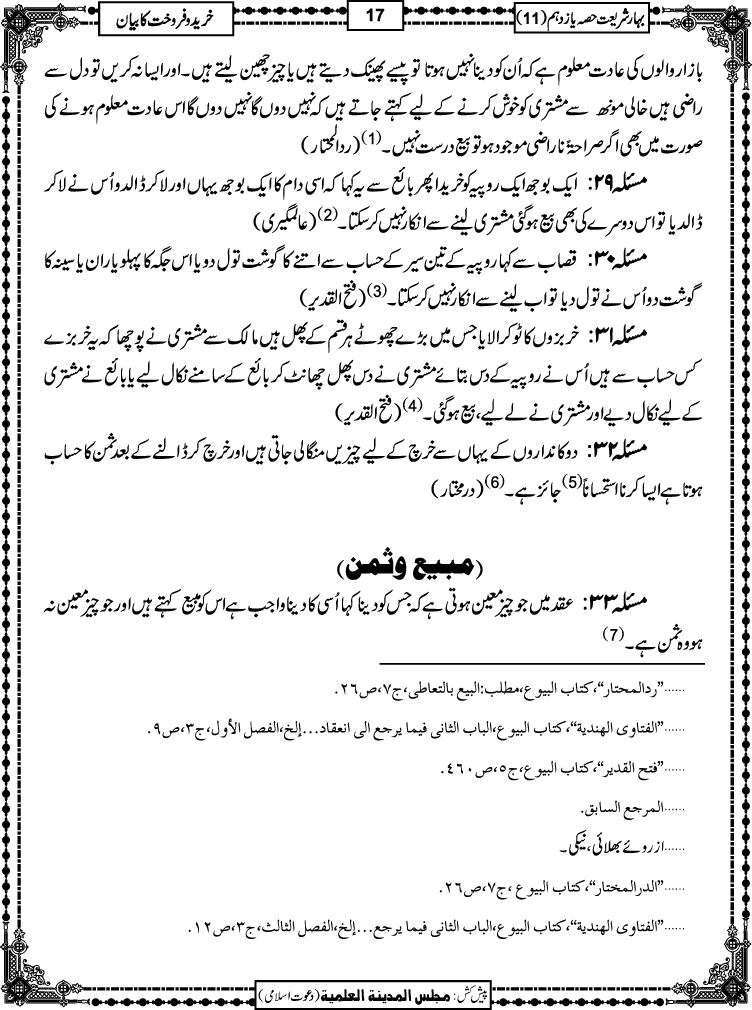 بہارِ شریعت حصہ یازدہم (11)
17
خرید و فروخت کا بیان
بازار والوں کی عادت معلوم ہے کہ اُن کو دینا نہیں ہوتا تو پیسے پھینک دیتے ہیں یا چیز چھین لیتے ہیں۔ اور ایسا نہ کریں تو دل سے
راضی ہیں خالی مونھ سے مشتری کو خوش کرنے کے لیے کہتے جاتے ہیں کہ نہیں دوں گا نہیں دوں گا اس عادت معلوم ہونے کی
صورت میں بھی اگر صراحۃً ناراضی موجود ہو تو بیع درست نہیں۔(1) (ردالمحتار)
مسئلہ ۲۹: ایک بوجھ ایک روپیہ کو خریدا پھر بائع سے یہ کہا کہ اسی دام کا ایک بوجھ یہاں اور لاکر ڈالدو اُس نے لاکر
ڈالدیا تو اس دوسرے کی بھی بیع ہوگئی مشتری لینے سے انکار نہیں کرسکتا۔(2) (عالمگیری)
مسئلہ ۳۰: قصاب سے کہا روپیہ کے تین سیر کے حساب سے اتنے کا گوشت تول دو یا اس جگہ کا پہلو یا ران یا سینہ کا
گوشت دو اُس نے تول دیا تو اب لینے سے انکار نہیں کرسکتا۔(3) (فتح القدیر)
مسئلہ ۳۱: خربزوں کا ٹوکرا لایا جس میں بڑے چھوٹے ہر قسم کے پھل ہیں مالک سے مشتری نے پوچھا کہ یہ خربزے
کس حساب سے ہیں اُس نے روپیہ کے دس بتائے مشتری نے دس پھل چھانٹ کر بائع کے سامنے نکال لیے یا بائع نے مشتری
کے لیے نکال دیے اور مشتری نے لے لیے، بیع ہوگئی۔(4) (فتح القدیر)
مسئلہ ۳۲: دوکانداروں کے یہاں سے خرچ کے لیے چیزیں منگالی جاتی ہیں اور خرچ کر ڈالنے کے بعد ثمن کا حساب
ہوتا ہے ایسا کرنا استحساناً(5) جائز ہے۔(6) (درمختار)
(مبیع و ثمن)
مسئلہ ۳۳: عقد میں جو چیز معین ہوتی ہے کہ جس کو دینا کہا اُسی کا دینا واجب ہے اس کو مبیع کہتے ہیں اور جو چیز معین نہ
ہو وہ ثمن ہے۔(7)
......”ردالمحتار“، کتاب البیوع، مطلب: البیع بالتعاطی، ج۷، ص۲۶.
......”الفتاوی الھندیة“، کتاب البیوع، الباب الثانی فیما یرجع الی انعقاد...إلخ، الفصل الأول، ج۳، ص۹.
......”فتح القدیر“، کتاب البیوع، ج۵، ص۴۶۰.
......المرجع السابق.
......از روئے بھلائی، نیکی۔
......”الدرالمختار“، کتاب البیوع، ج۷، ص۲۶.
......”الفتاوی الھندیة“، کتاب البیوع، الباب الثانی فیما یرجع...إلخ، الفصل الثالث، ج۳، ص۱۲.
پیش کش: مجلس المدینة العلمیة (دعوت اسلامی)